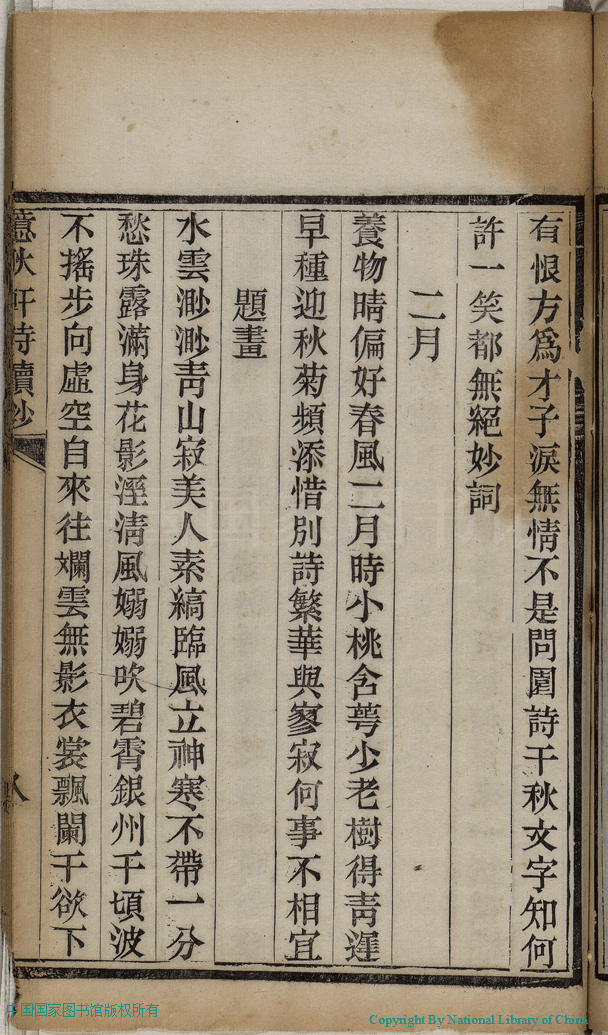 有恨方爲才子淚無情不是問園詩千秋文字知何
許一笑都無絕妙詞
二月
養物晴偏好春風二月時小桃含萼少老樹得青遲
早種迎秋菊頻添惜別詩繁華與寥寂何事不相宜
題畫
水雲渺渺青山寂美人素縞臨風立神寒不帶一分
愁珠露滿身花影溼淸風嫋嫋吹碧霄銀州千頃波
不搖步向虛空自來往斕雲無影衣裳飄闌干欲下
憶秋軒詩續抄
八
中国国家图书馆版权所有
Copyright By National Library of China